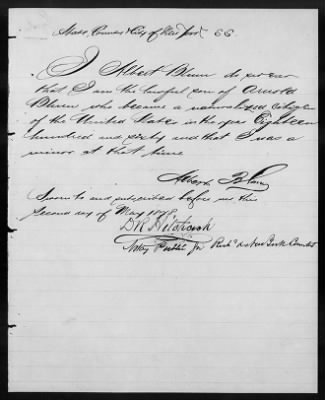 State County & City of New York SS
I Albert Blum do swear
that I am the lawful son of Arnold
Blum who became a naturalized citizen
of the United States in the year Eighteen
hundred and sixty and that I was a
minor at that time
Albert Blum
Sworn to and subscribed before me this
second day of May 1878
D R Hitchcock
Notary Public Jr